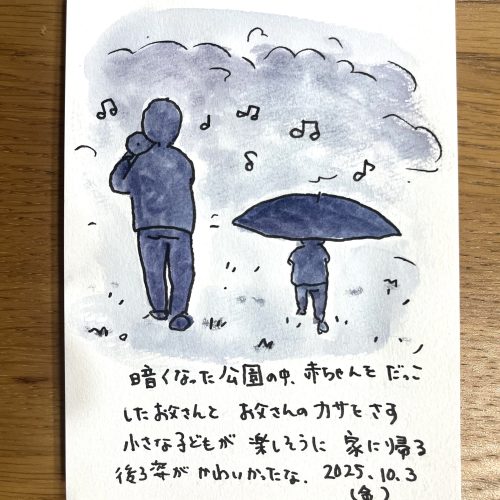 暗くなった公園の中、赤ちゃんを だっこ
したお父さんと お父さんのカサをさす
小さな子どもが 楽しそうに 家に帰る
後ろ姿が かわいかったな. 2025.10.3
(金)